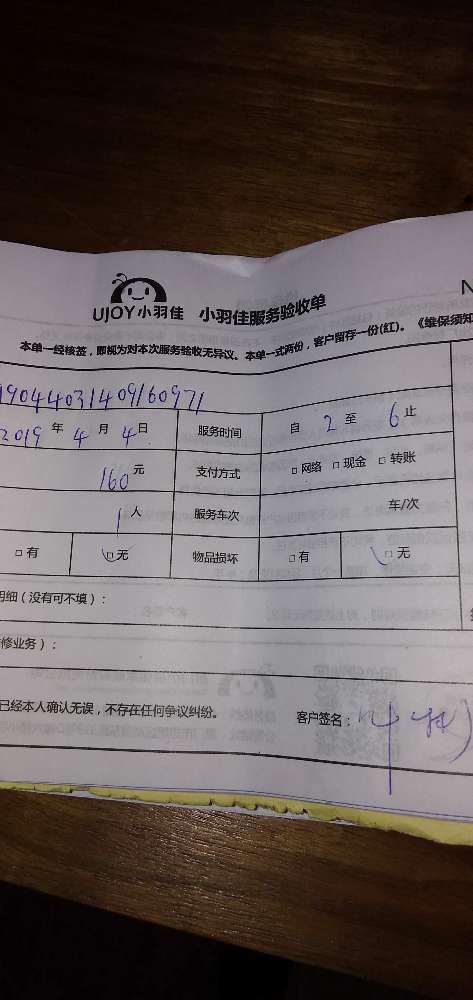 UJOY小羽佳 小羽佳服务验收单
N
本单一经核签，即视为对本次服务验收无异议。本单一式两份，客户留存一份(红)。《维保须知
19044031409160971
2019 年 4 月 4 日 服务时间 自 2 至 6 止
160 元 支付方式 □ 网络 □ 现金 □ 转账
1 人 服务车次 车/次
□ 有 □ 无 物品损坏 □ 有 □ 无
明细（没有可不填）：
修业务）：
已经本人确认无误，不存在任何争议纠纷。 客户签名：叶